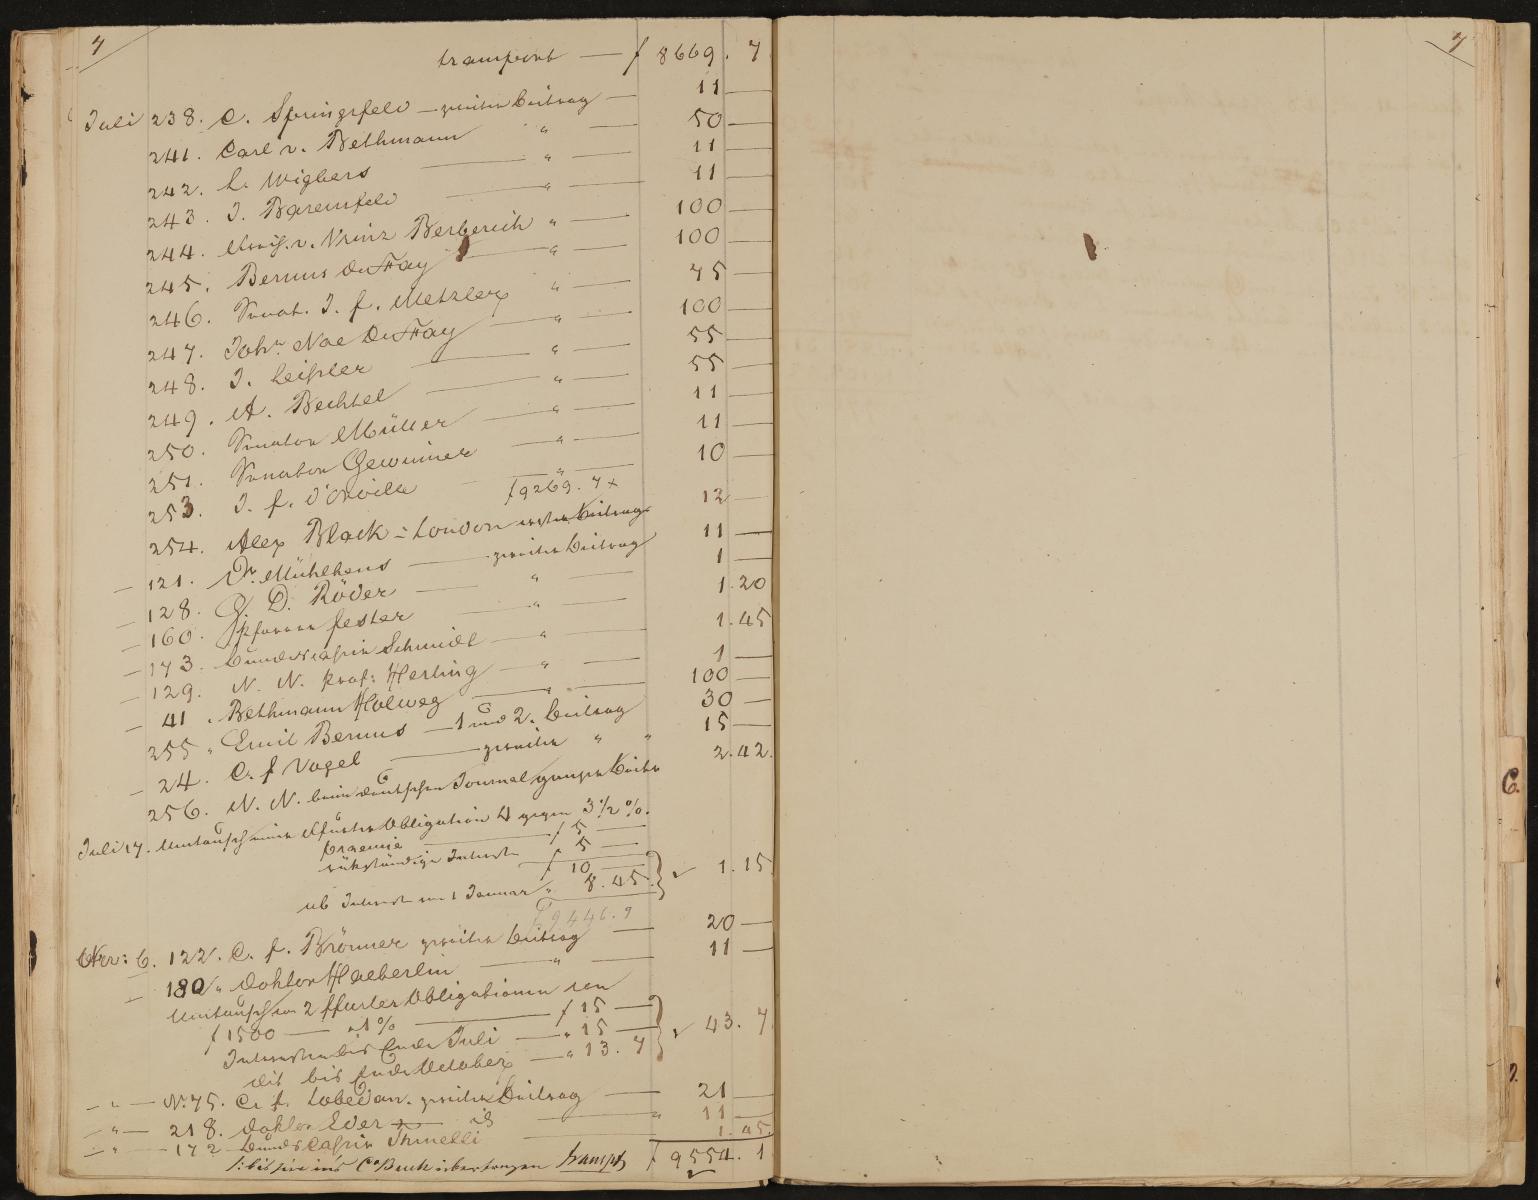 7
transport — f 8669. 7
Juli 238. C. Springsfeld — zweiter Beitrag — 11 —
241. Carl v. Bethmann " — 50 —
242. L. Wigbers — " — 11 —
243. I. Barensfeld — " — 11 —
244. v. Prinz Berberich " — 100 —
245. Bernus DuFay — " — 100 —
246. Senat. I. f. Metzler " — 75 —
247. Joh. Noe DuFay — " — 100 —
248. I. Leißler — " — 55 —
249. A. Bechtel — " — 55 —
250. Senator Müller — " — 11 —
251. Senator Gewinner — " — 11 —
253. I. f. d'Orville — " — 10 —
f 9269. 7 x
254. Alex Black = London erster Beitrag 12 —
— 121. Dr. Mühlhens — zweiter Beitrag 11 —
— 128. G. D. Röder — " — 1 —
— 160. Pfarrer fester — " — 1. 20
— 173. Bundescassir Schmidt — " — 1. 45
— 129. N. N. Prof: Herling — " — 1 —
— 41. Bethmann Holweg — " — 100 —
255 " Emil Bernus — 1 und 2. Beitrag 30 —
— 24. C. f Vogel — zweiter " " 15 —
256. N. N. beim deutschen Journal 2. 42.
Juli 17. Umtausch einer Obligation 4 gegen 3 1/2 %.
Praemie — f 5 —
rükständige Interesse f 5 —
f 10 —
ab Interesse vom 1 Januar " 8. 45. 1. 15.
f 9446. 9
6. 122. C. f. Brönner zweiter Beitrag — 20 —
— 180 " doktor Haeberlin — " — 11 —
Umtausch von 2 ffurter Obligationen von
f 1500 — a 1 % — f 15 —
Interessen bis Ende Juli — " 15 — 43. 7
dit bis Ende October — " 13. 7
— " — N. 75. C. f. Lobedan. zweiter Beitrag — 21 —
— " — 218. doktor Eder — " 11 —
— " — 172 Bundescassir Thinelli — 1. 45.
transpt f 9554. 1
7